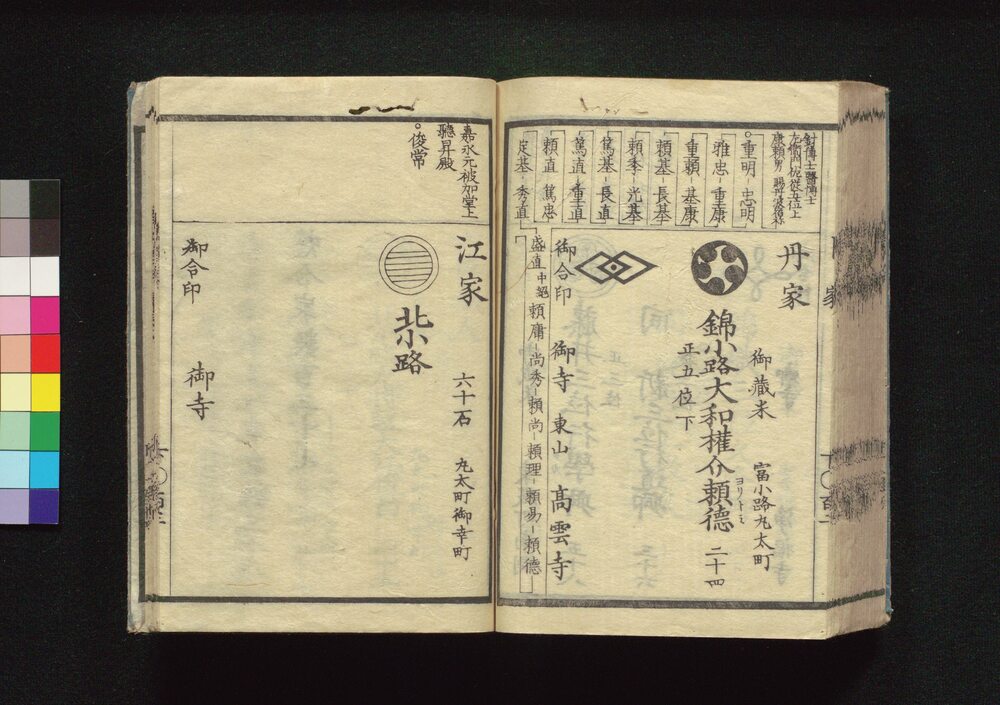 丹家
針博士醫博士
左衛門佐從五位上
康頼男 賜丹波宿祢
○重明-忠明
雅忠-重康
重頼-基康
頼基-長基
頼季-光基
篤基-長直
篤直-重直
頼直 篤忠
定基-秀直
盛直 中絶 頼庸-尚秀-頼尚-頼理-頼易-頼德
御藏米 富小路丸太町
錦小路大和權介頼德 二十四
ヨリトミ
正五位下
御合印 御寺 東山 高雲寺
嘉永元被加堂上
聽昇殿
○俊常
江家
六十石 丸太町御幸町
北小路
御合印 御寺